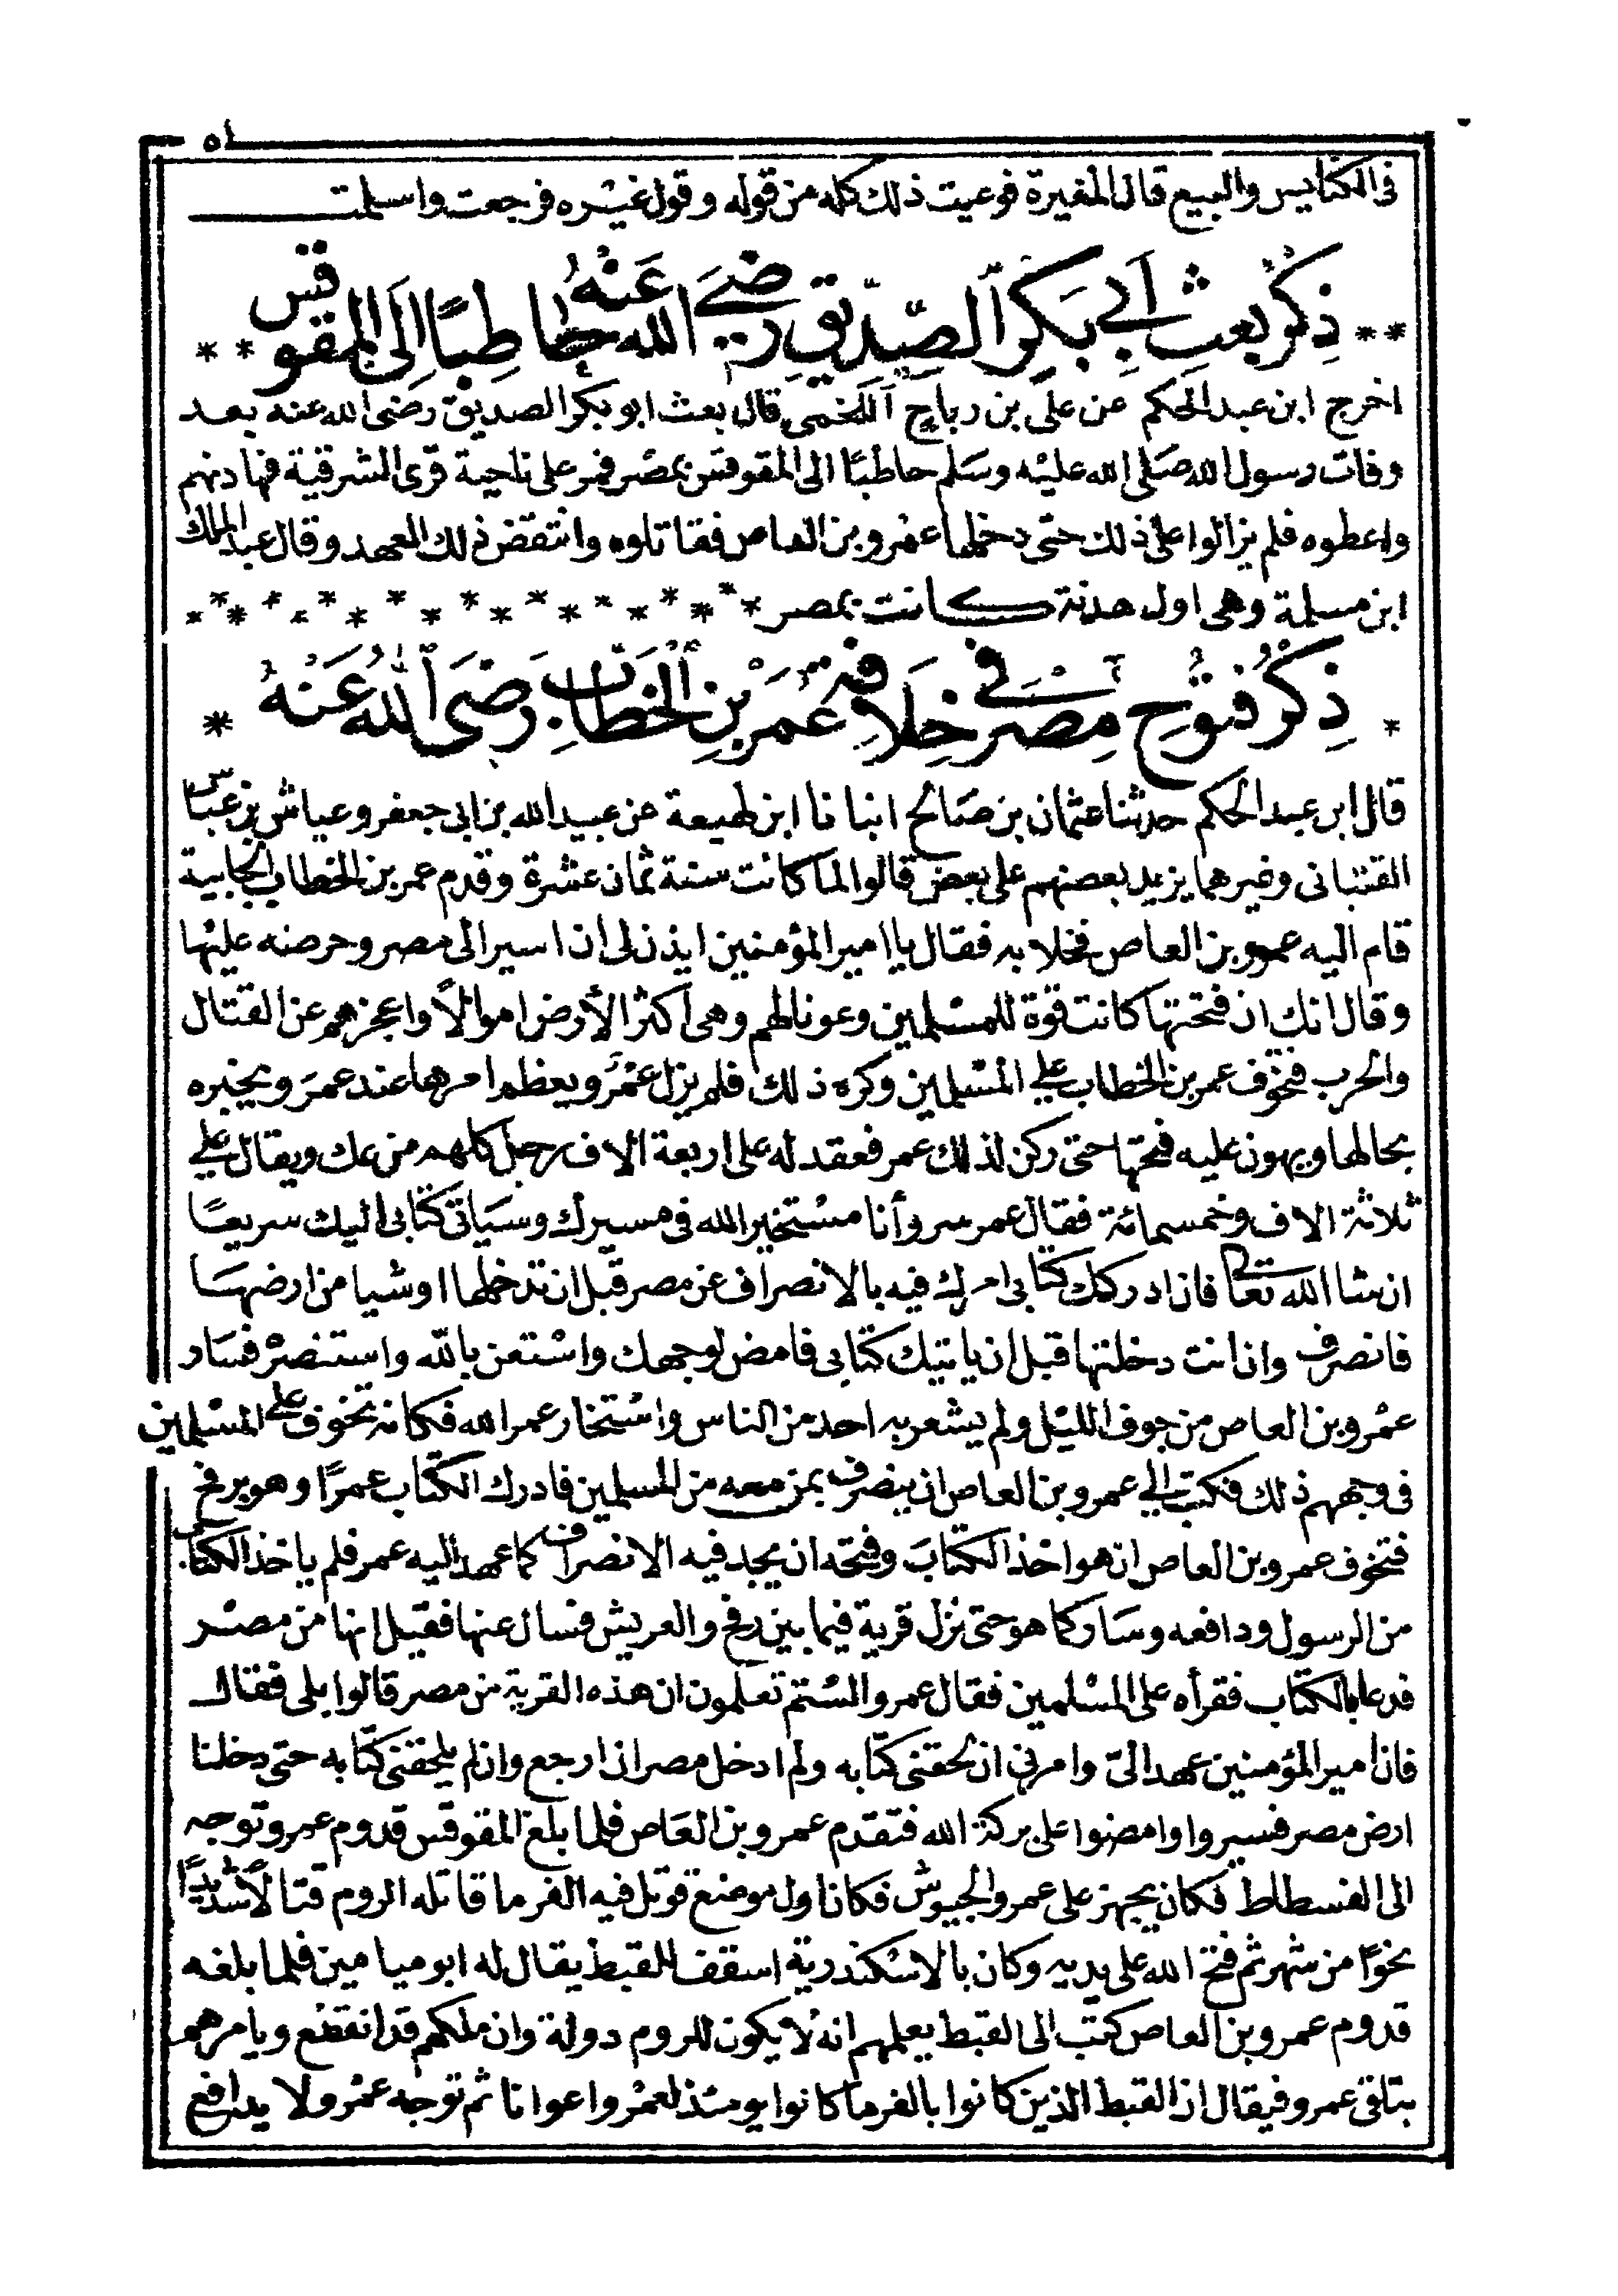 ٥١
فى الكنايس والبيع قال المغيرة فوعيت ذلك كله من قوله وقول غيْره فرجعت واسلمت
** ذِكْرُ بعثِ اَبِي بَكِرِ اَلصِّدّيقِ رَضىَ الله عَنْهُ حاطِبًا اِلَى المقوقس **
اخرج ابن عبد الحكم عن على بن رباحٍ اللخمى قال بعث ابو بكر الصديق رضى الله عنه بعد
وفات رسول الله صَلى الله عليْه وسَلم حاطبًا الى المقوقس بمصْر فمر على ناحية قرى الشرقية فهادنهم
واعطوه فلم يزالوا على ذلك حتى دخلها عمْرو بن العاص فقاتلوه وانتقض ذلك العهد وقال عبد الملك
ابن مسلمة وهى اول هدنة كانت بمصر * * * * * * * * * * * * * * * *
* ذِكْرُ فتُوحِ مِصْرَ فى خِلَافةِ عُمَرَ بْنِ اَلْخَطّابِ رَضىَ اَللّٰهُ عَنْهُ *
قال ابن عبد الحكم حدثنا عثمان بن صَالح انبانا ابن لهيعة عن عبيد الله بن ابى جعفر وعياش بن عباس
القتبانى وغيرهما يزيد بعضهم على بعض قالوا لما كانت سنة ثمان عشرة وقدم عمر بن الخطاب الجابية
قام اليه عمرو بن العاص فخلا به فقال يا امير المؤمنين ايذن لى ان اسير الى مصر وحرضه عليْها
وقال انك ان فتحتها كانت قوة للمسْلمين وعونا لهم وهى اكثر الأرض اموالًا واعجزهم عن القتال
والحرب فتخوّف عمر بن الخطاب على المسْلمين وكره ذلك فلم يزل عمْرو يعظم امرها عند عمرَ ويخبره
بحالها ويهون عليه فتحها حتى ركن لذلك عمر فعقد له على اربعة الاف رجل كلهم من عك ويقال على
ثلاثة الاف وخمسمائة فقال عمر سر وأنا مسْتخير الله فى مسيرك وسيَاتى كتابى اليك سريعًا
ان شا الله تعالى فان ادركك كتابى امرك فيه بالانصراف عن مصر قبل ان تدخلها او شيا من ارضهَا
فانصرف وان انت دخلتها قبل ان ياتيك كتابى فامض لوجهك واسْتعن بالله واستنصرْ فسَار
عمْرو بن العاص من جوف الليْل ولم يشعر به احد من الناس واسْتخار عمر الله فكانه تخوف على المسْلمين
فى وجههم ذلك فكتب الى عمرو بن العاص ان ينصرف بمن معه من المسلمين فادرك الكتاب عمرًا وهو برفح
فتخوف عمرو بن العاص ان هو اخذ الكتابَ وفتحه ان يجد فيه الانصراف كما عهد اليه عمر فلم ياخذ الكتاب
من الرسول ودافعه وسَار كما هو حتى نزل قرية فيما بين رفح والعريش فسال عنها فقيل انها من مصْر
فدعا بالكتاب فقرأه على المسْلمين فقال عمرو السْتم تعلمون ان هذه القرية من مصر قالوا بلى فقال
فان امير المؤمنين عهد الىّ وامرنى ان لحقنى كتابه ولم ادخل مصر ان ارجع وان لم يلحقنى كتابه حتى دخلنا
ارض مصر فسيروا وامضوا على بركة الله فتقدم عمرو بن العَاص فلما بلغ المقوقس قدوم عمرو توجه
الى الفسطاط فكان يجهز على عمرو الجيوش فكان اول موضع قوتل فيه الفرما قاتله الروم قتالًا شديدًا
نحوًا من شهر ثم فتح الله على يديه وكان بالاسْكندرية اسقف للقبط يقال له ابو ميامين فلما بلغه
قدوم عمرو بن العاص كتب الى القبط يعلمهم انهُ لا يكون للروم دولة وان ملكهم قد انقطع ويامرهم
بتلقى عمرو فيقال ان القبط الذين كانوا بالفرما كانوا يومئذ لعمْرو اعوانا ثم توجه عمْرو لا يدافع